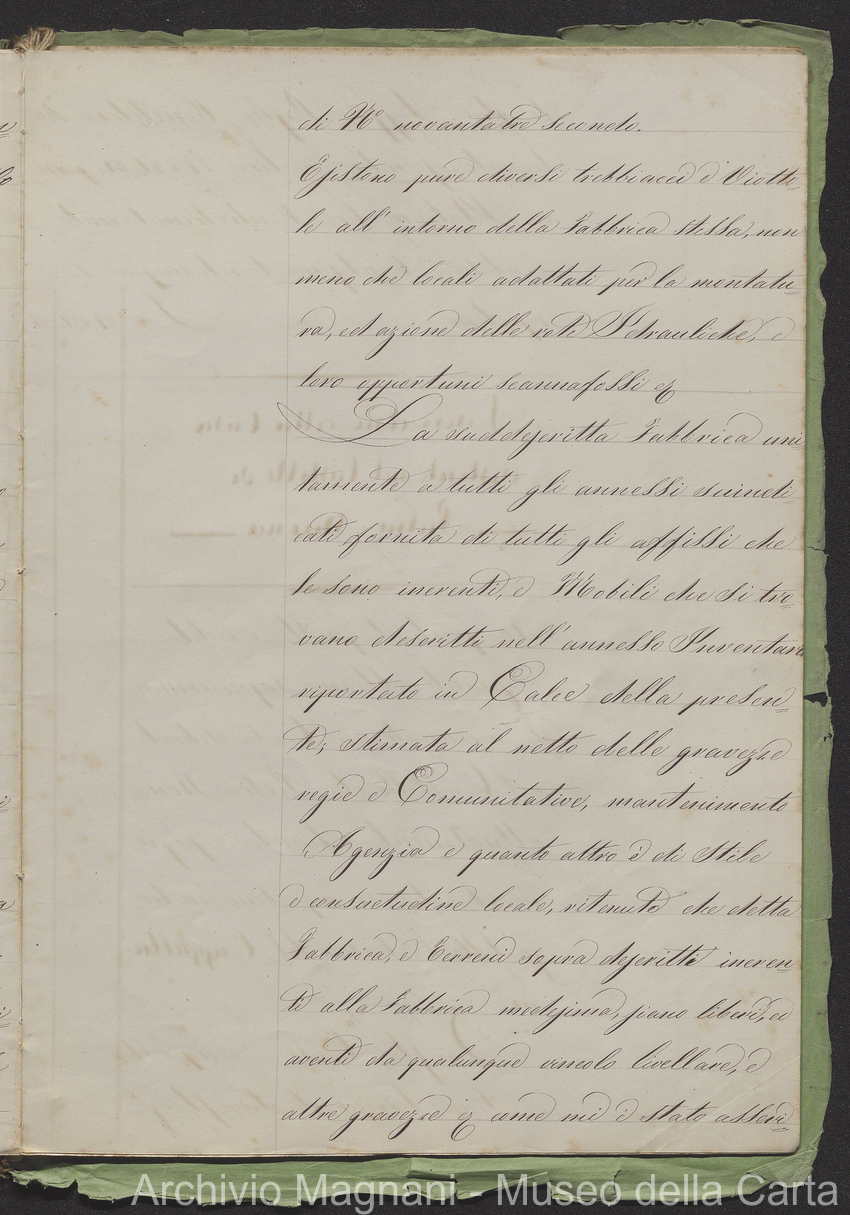 di N.o novantatre secondo.
Esistono pure diversi trebbiacci e Viotto-
le all' intorno della Fabbrica stessa, non
meno che locali adattati per la montatu-
ra, ed azione delle rote Idrauliche, e
loro opportuni scannafossi &
La suddescritta Fabbrica uni
tamente a tutti gli annessi suindi-
cati fornita di tutti gli affissi che
le sono inerenti, e Mobili che si tro-
vano descritti nell'annesso Inventaro
riportato in Calce della presen-
te; stimata al netto delle gravezze
regie e Comunitative, mantenimento
Agenzia e quanto altro è di Stile
e consuetudine locale, ritenuto che detta
Fabbrica, e Terreni sopra descritti ineren-
ti alla Fabbrica medesima, siano liberi, ed
aventi da qualunque vincolo livellare, e
altre gravezze & come mi è stato asseri-
Archivio Magnani - Museo della Carta